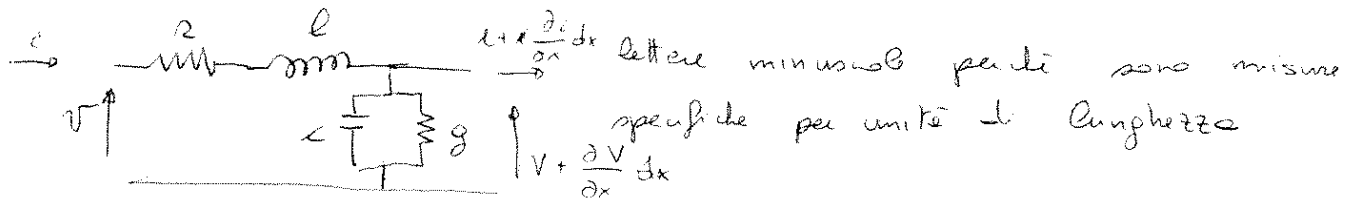 i r l i + ∂i/∂x dx lettere minuscole perché sono misure
v c g specifiche per unità di lunghezza
V + ∂V/∂x dx